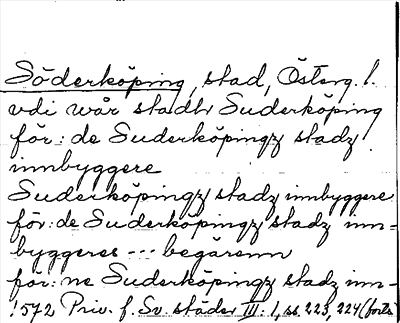 Söderköping, stad, Österg. l.
vdi wår stadh Suderköping
för: de Suderköpingz stadz
innbyggere
Suderköpingz stadz innbyggere
för: de Suderköpingz stadz inn-
byggeres --- begärenn
för: ne Suderköpingz stadz inn-
1572 Priv. f. Sv. städer III: 1, ss. 223, 224 (forts